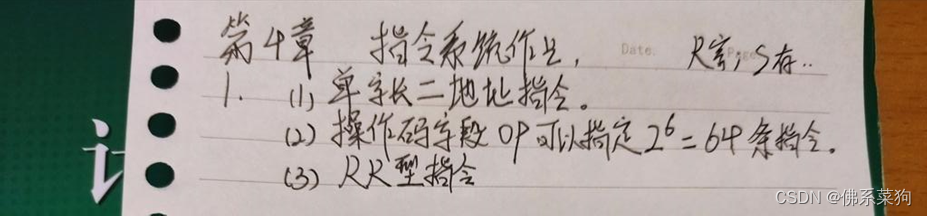 第4章 指令系统作业, Date. Page R寄; S存..
1. (1) 单字长二地址指令。
(2) 操作码字段OP可以指定2^6=64条指令。
(3) RR型指令
计
CSDN @佛系菜狗